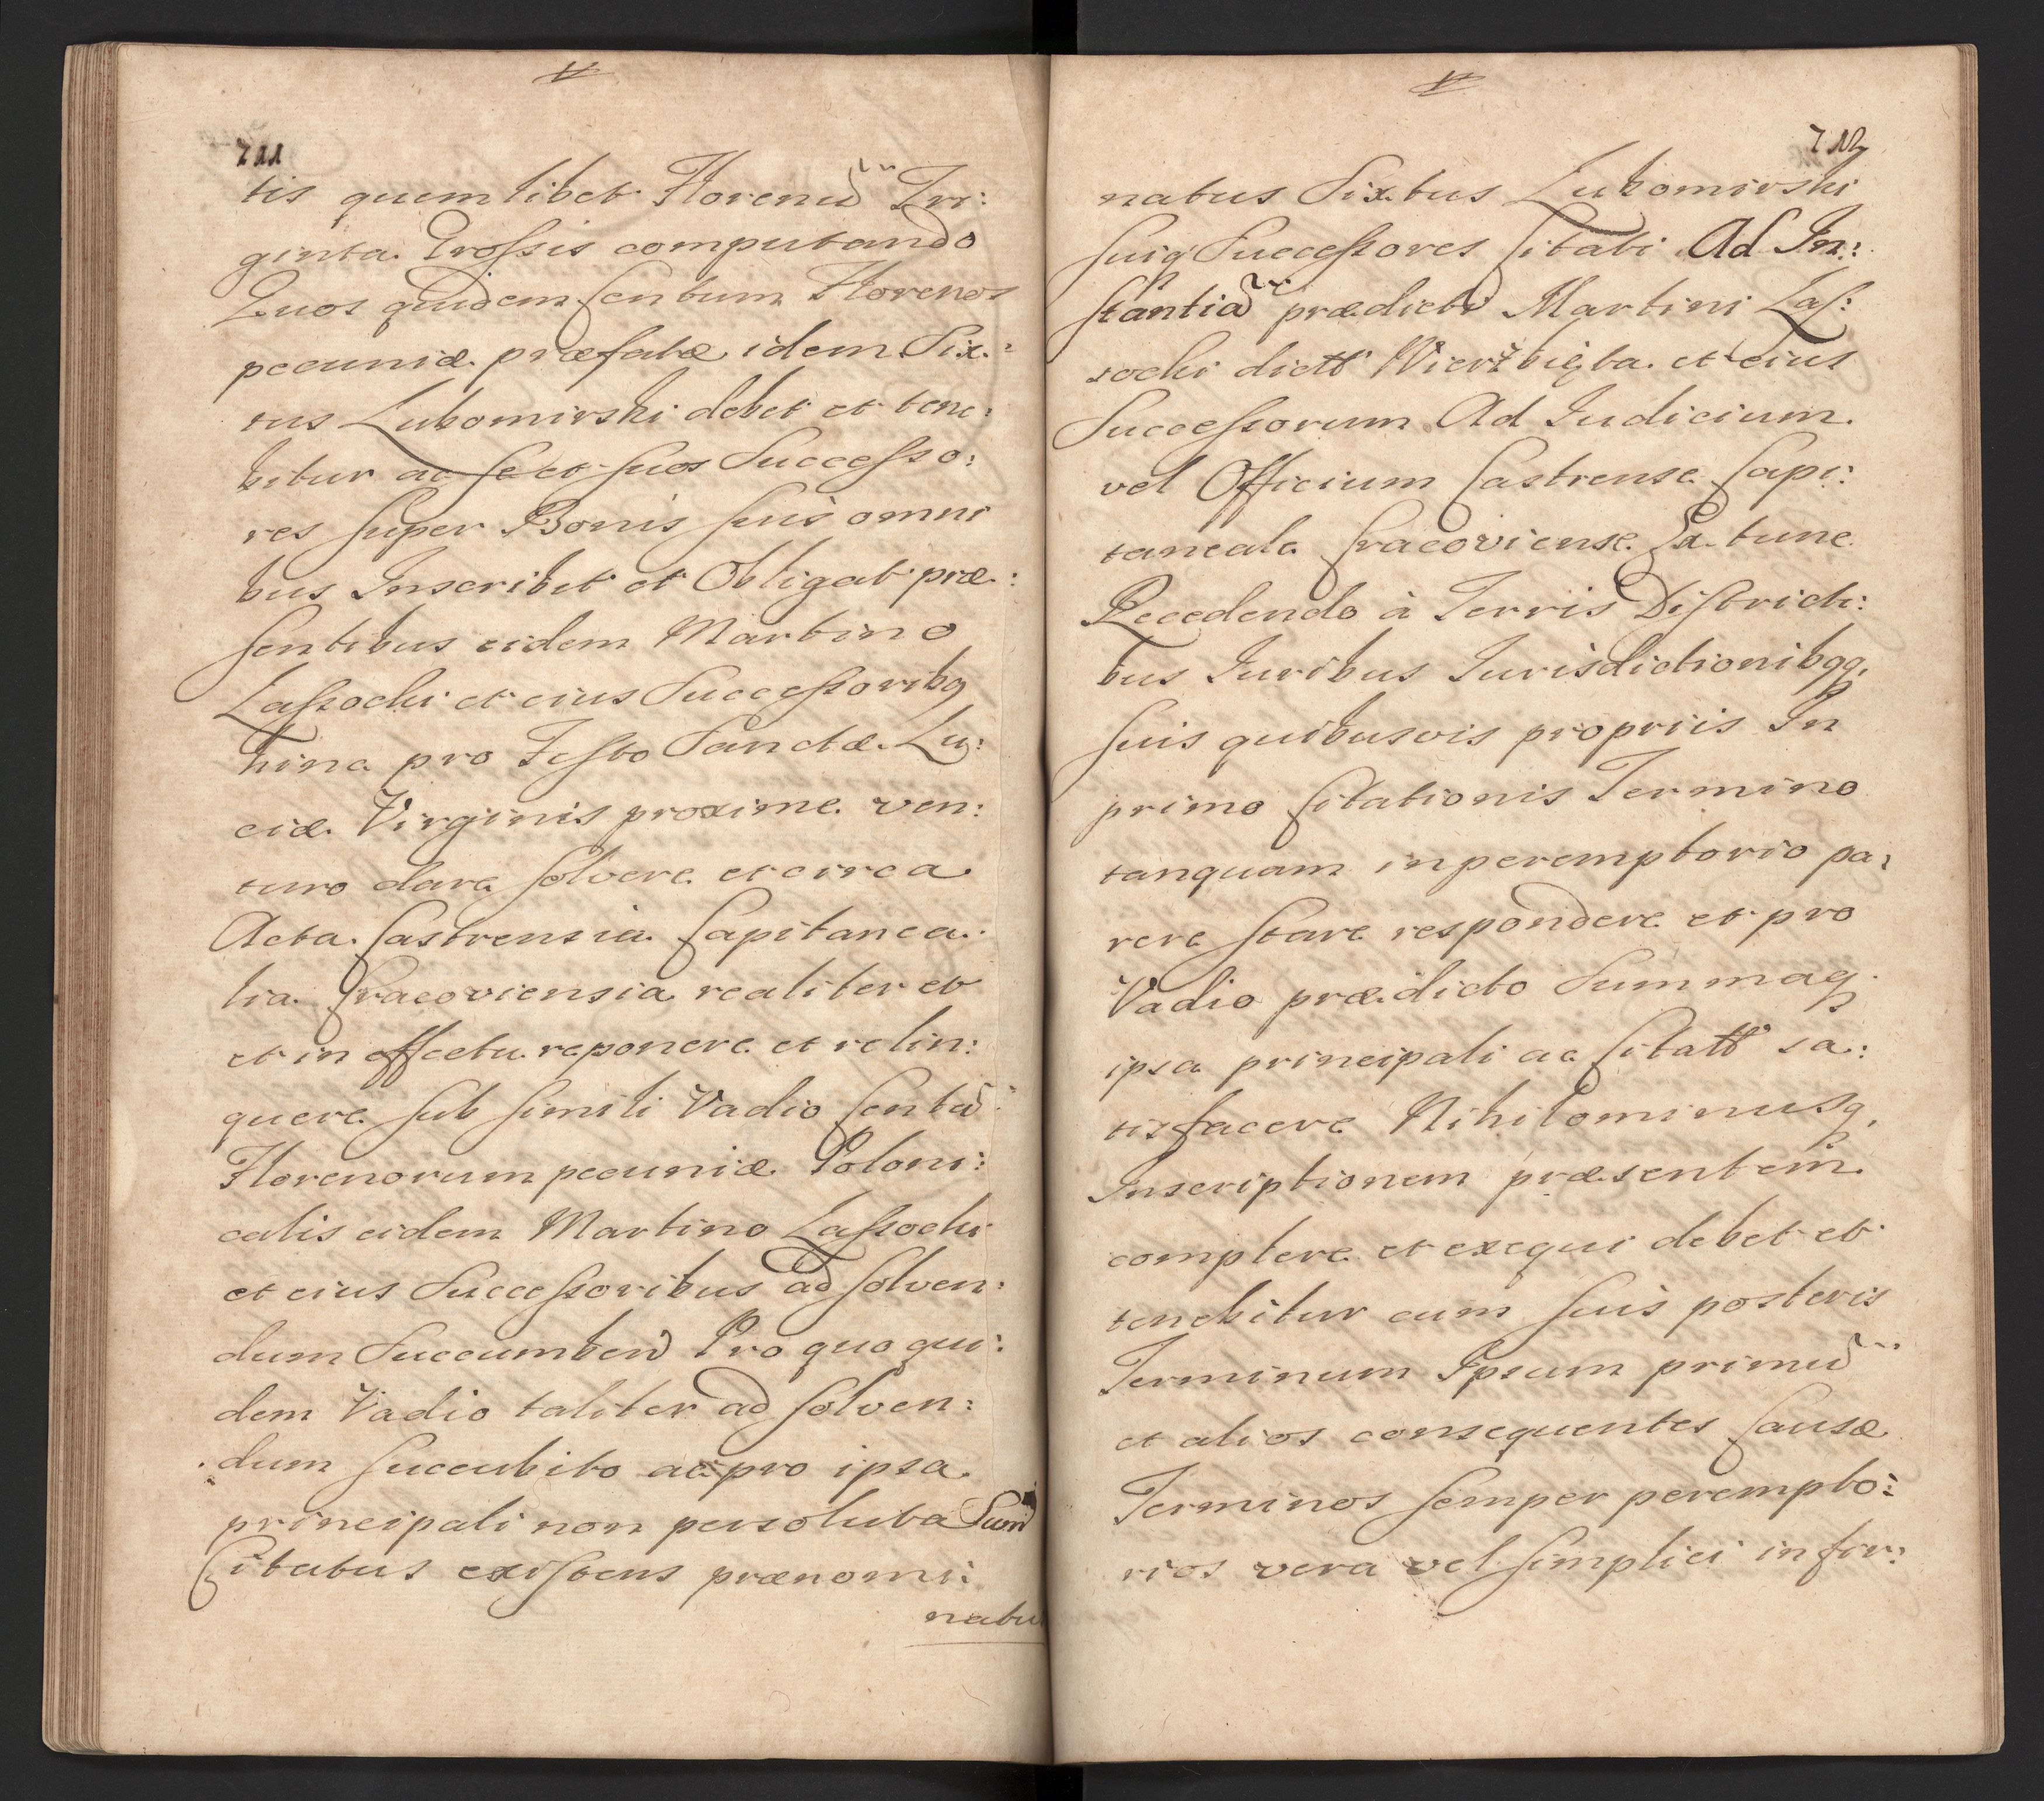 711
tis quemlibet Florenũ Tri:
ginta Grossis computando
Quos quidem Centum Florenos
pecuniæ præfatæ idem Six:
tus Lubomirski debet et tene:
bitur ac se et suos Successo:
res super Bonis suis omni
bus Inscribit et Obligat præ:
sentibus eidem Martino
Lassochi et eius Successoribq
hinc pro Festo Sanctæ Lu:
ciæ Virginis proxime ven:
turo dare solvere et circa
Acta Castrensia Capitanea:
lia Cracoviensia realiter et
et in effectu reponere et relin:
quere sub simili Vadio Centũ
Florenorum pecuniæ Poloni:
calis eidem Martino Lassochi
et eius Successoribus ad solven:
dum Succumbend Pro quo qui:
dem Vadio taliter ad solven:
dum succubito ac pro ipsa
principali non persoluta Sum̃
Citatus existens prænomi:
natus
712
natus Sixtus Lubomirski
suiq Successores Citati Ad In:
stantiã prædicti Martini Las:
sochi dictt Wierzbięta et eius
Successorum Ad Iudicium
vel Officium Castrense Capi:
taneale Cracoviense Ex tunc
Recedendo à Terris District:
bus Iuribus Iurisdictionibqq,
suis quibusvis propriis In
primo Citationis Termino
tanquam in peremptorio pa:
rere stare respondere et pro
Vadio prædicto Summaq
ipsa principali ac Citatt sa:
tisfacere Nihilominusq,
Inscriptionem præsentem
complere et exequi debet et
tenebitur cum suis posteris
Terminum Ipsum primũ
et alios consequentes Causæ
Terminos semper perempto:
rios vera vel simplici infir: